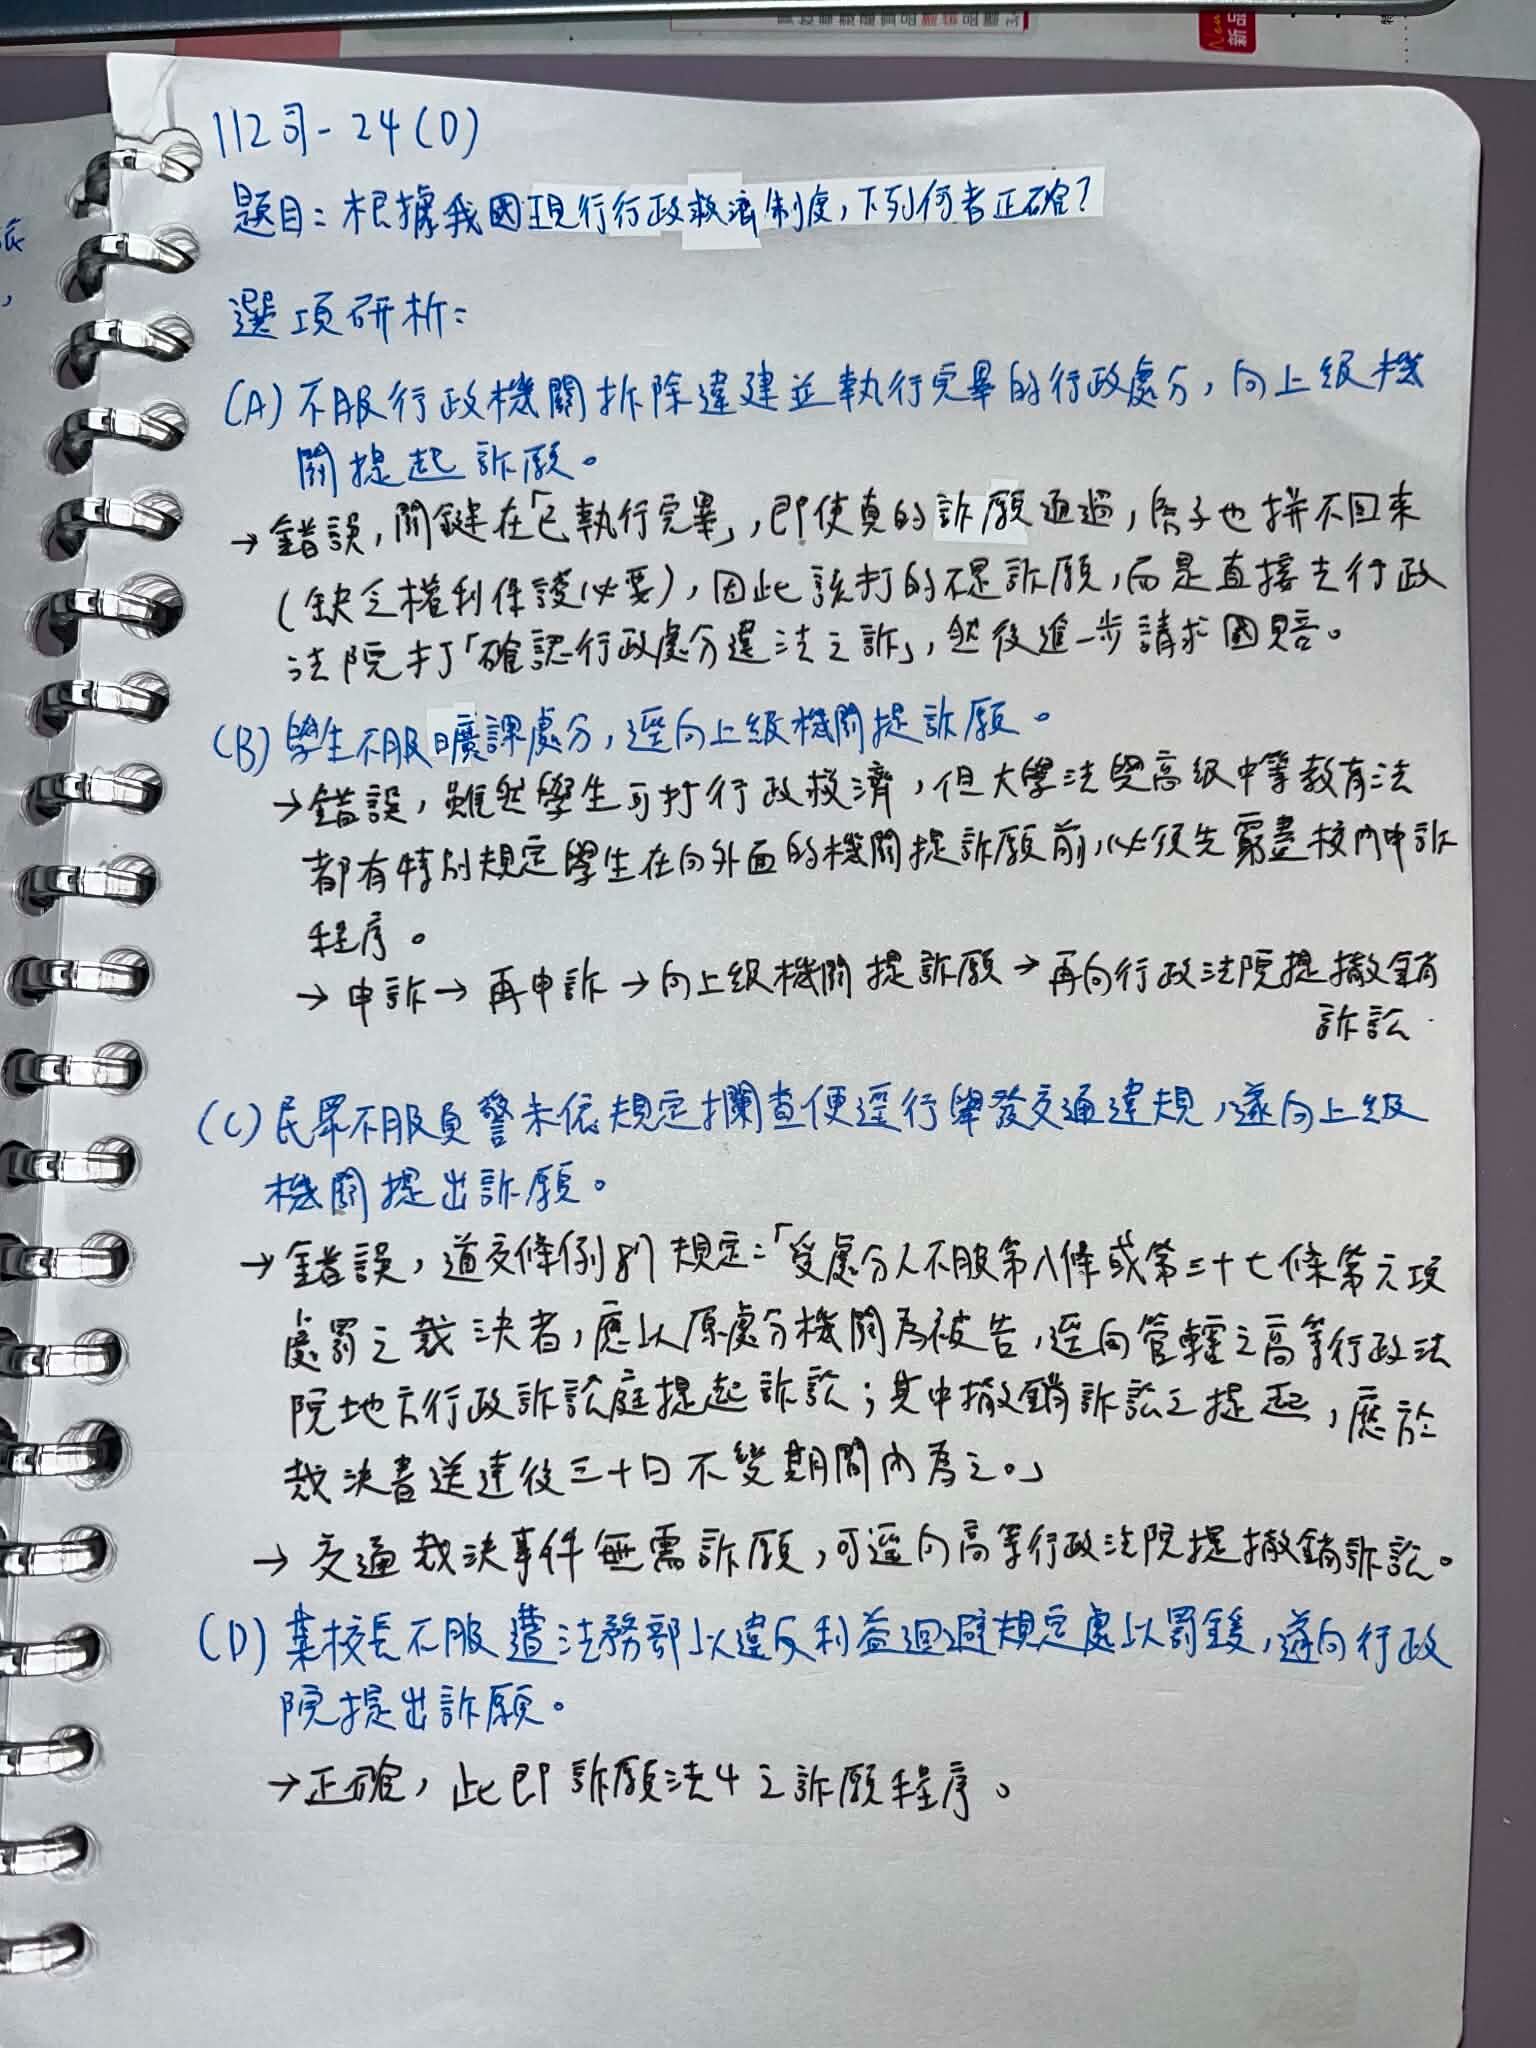 112司-24(D)
題目:根據我國現行行政救濟制度,下列何者正確?
選項研析:
(A)不服行政機關拆除違建並執行完畢的行政處分,向上級機
關提起訴願。
→錯誤,關鍵在「已執行完畢」,即使真的訴願通過,房子也拼不回來
(缺乏權利保護必要),因此該打的不是訴願,而是直接去行政
法院打「確認行政處分違法之訴」,然後進一步請求國賠。
(B)學生不服曠課處分,逕向上級機關提訴願。
→錯誤,雖然學生可打行政救濟,但大學法與高級中等教育法
都有特別規定學生在向外面的機關提訴願前,必須先窮盡校內申訴
程序。
→申訴→再申訴→向上級機關提訴願→再向行政法院提撤銷
訴訟.
(C)民眾不服員警未依規定攔查便逕行舉發交通違規,遂向上級
機關提出訴願。
→錯誤,道交條例87規定:「受處分人不服第八條或第三十七條第六項
處罰之裁決者,應以原處分機關為被告,逕向管轄之高等行政法
院地方行政訴訟庭提起訴訟;其中撤銷訴訟之提起,應於
裁決書送達後三十日不變期間內為之。」
→交通裁決事件無需訴願,可逕向高等行政法院提撤銷訴訟。
(D)某校長不服遭法務部以違反利益迴避規定處以罰鍰,遂向行政
院提出訴願。
→正確,此即訴願法4之訴願程序。